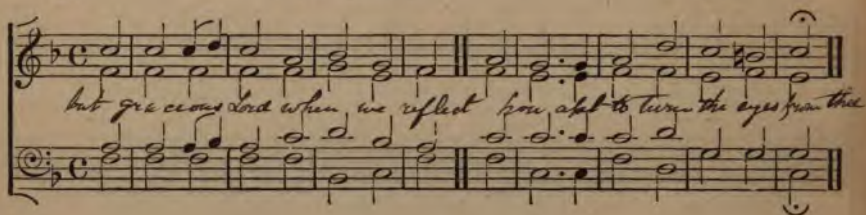 but gracious Lord when we reflect how apt to turn the eyes from thee